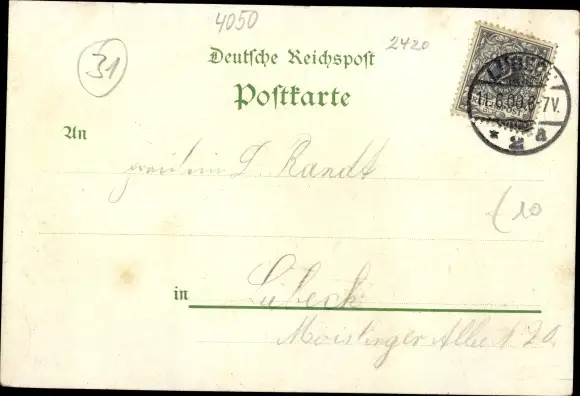 4050
31
Deutsche Reichspost
2420
Postkarte
LÜBECK
11.6.00.6-7V.
* 2 d
An
L. Randt
10
in Lübeck
Moislinger Allee 20.